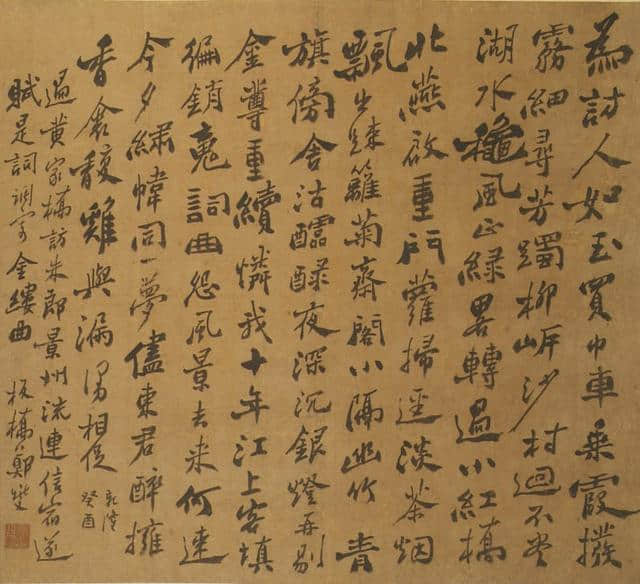 為訪人如玉買巾車乘霞撥
霧細尋芳躅柳岍沙村迴不盡
湖水龝風正綠畧轉過小紅橋
北燕啟重門蘿掃逕淡茶烟
飄出踈籬菊齋閣小隔幽竹青
旗傍舍沽醽醁夜深沉銀燈再剔
金尊重續憐我十年江上客填
徧銷魂詞曲怨風景去來何速
今夕繡幃同一夢儘東君醉擁
香衾馥雞與漏漫相促
乾隆
癸酉
過黃家橋訪朱郎景州流連信宿遂
賦是詞調寄金縷曲 板橋鄭燮